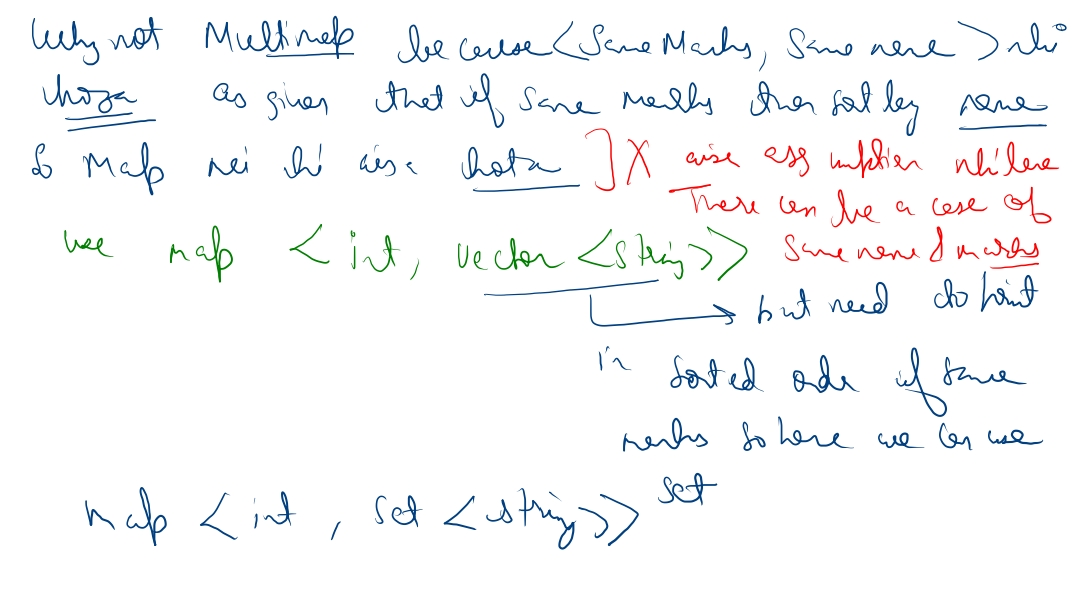 Why not Multimap because <Same Marks, Same name> nhi
hoga as given that if same marks then sort by name
So Map mei hi aisa hota ] X aise assumption nhi lena
There can be a case of
use map <int, vector <string>> same name & marks
but need to print
in sorted order if same
marks so here we can use
set
map <int, set <string>>